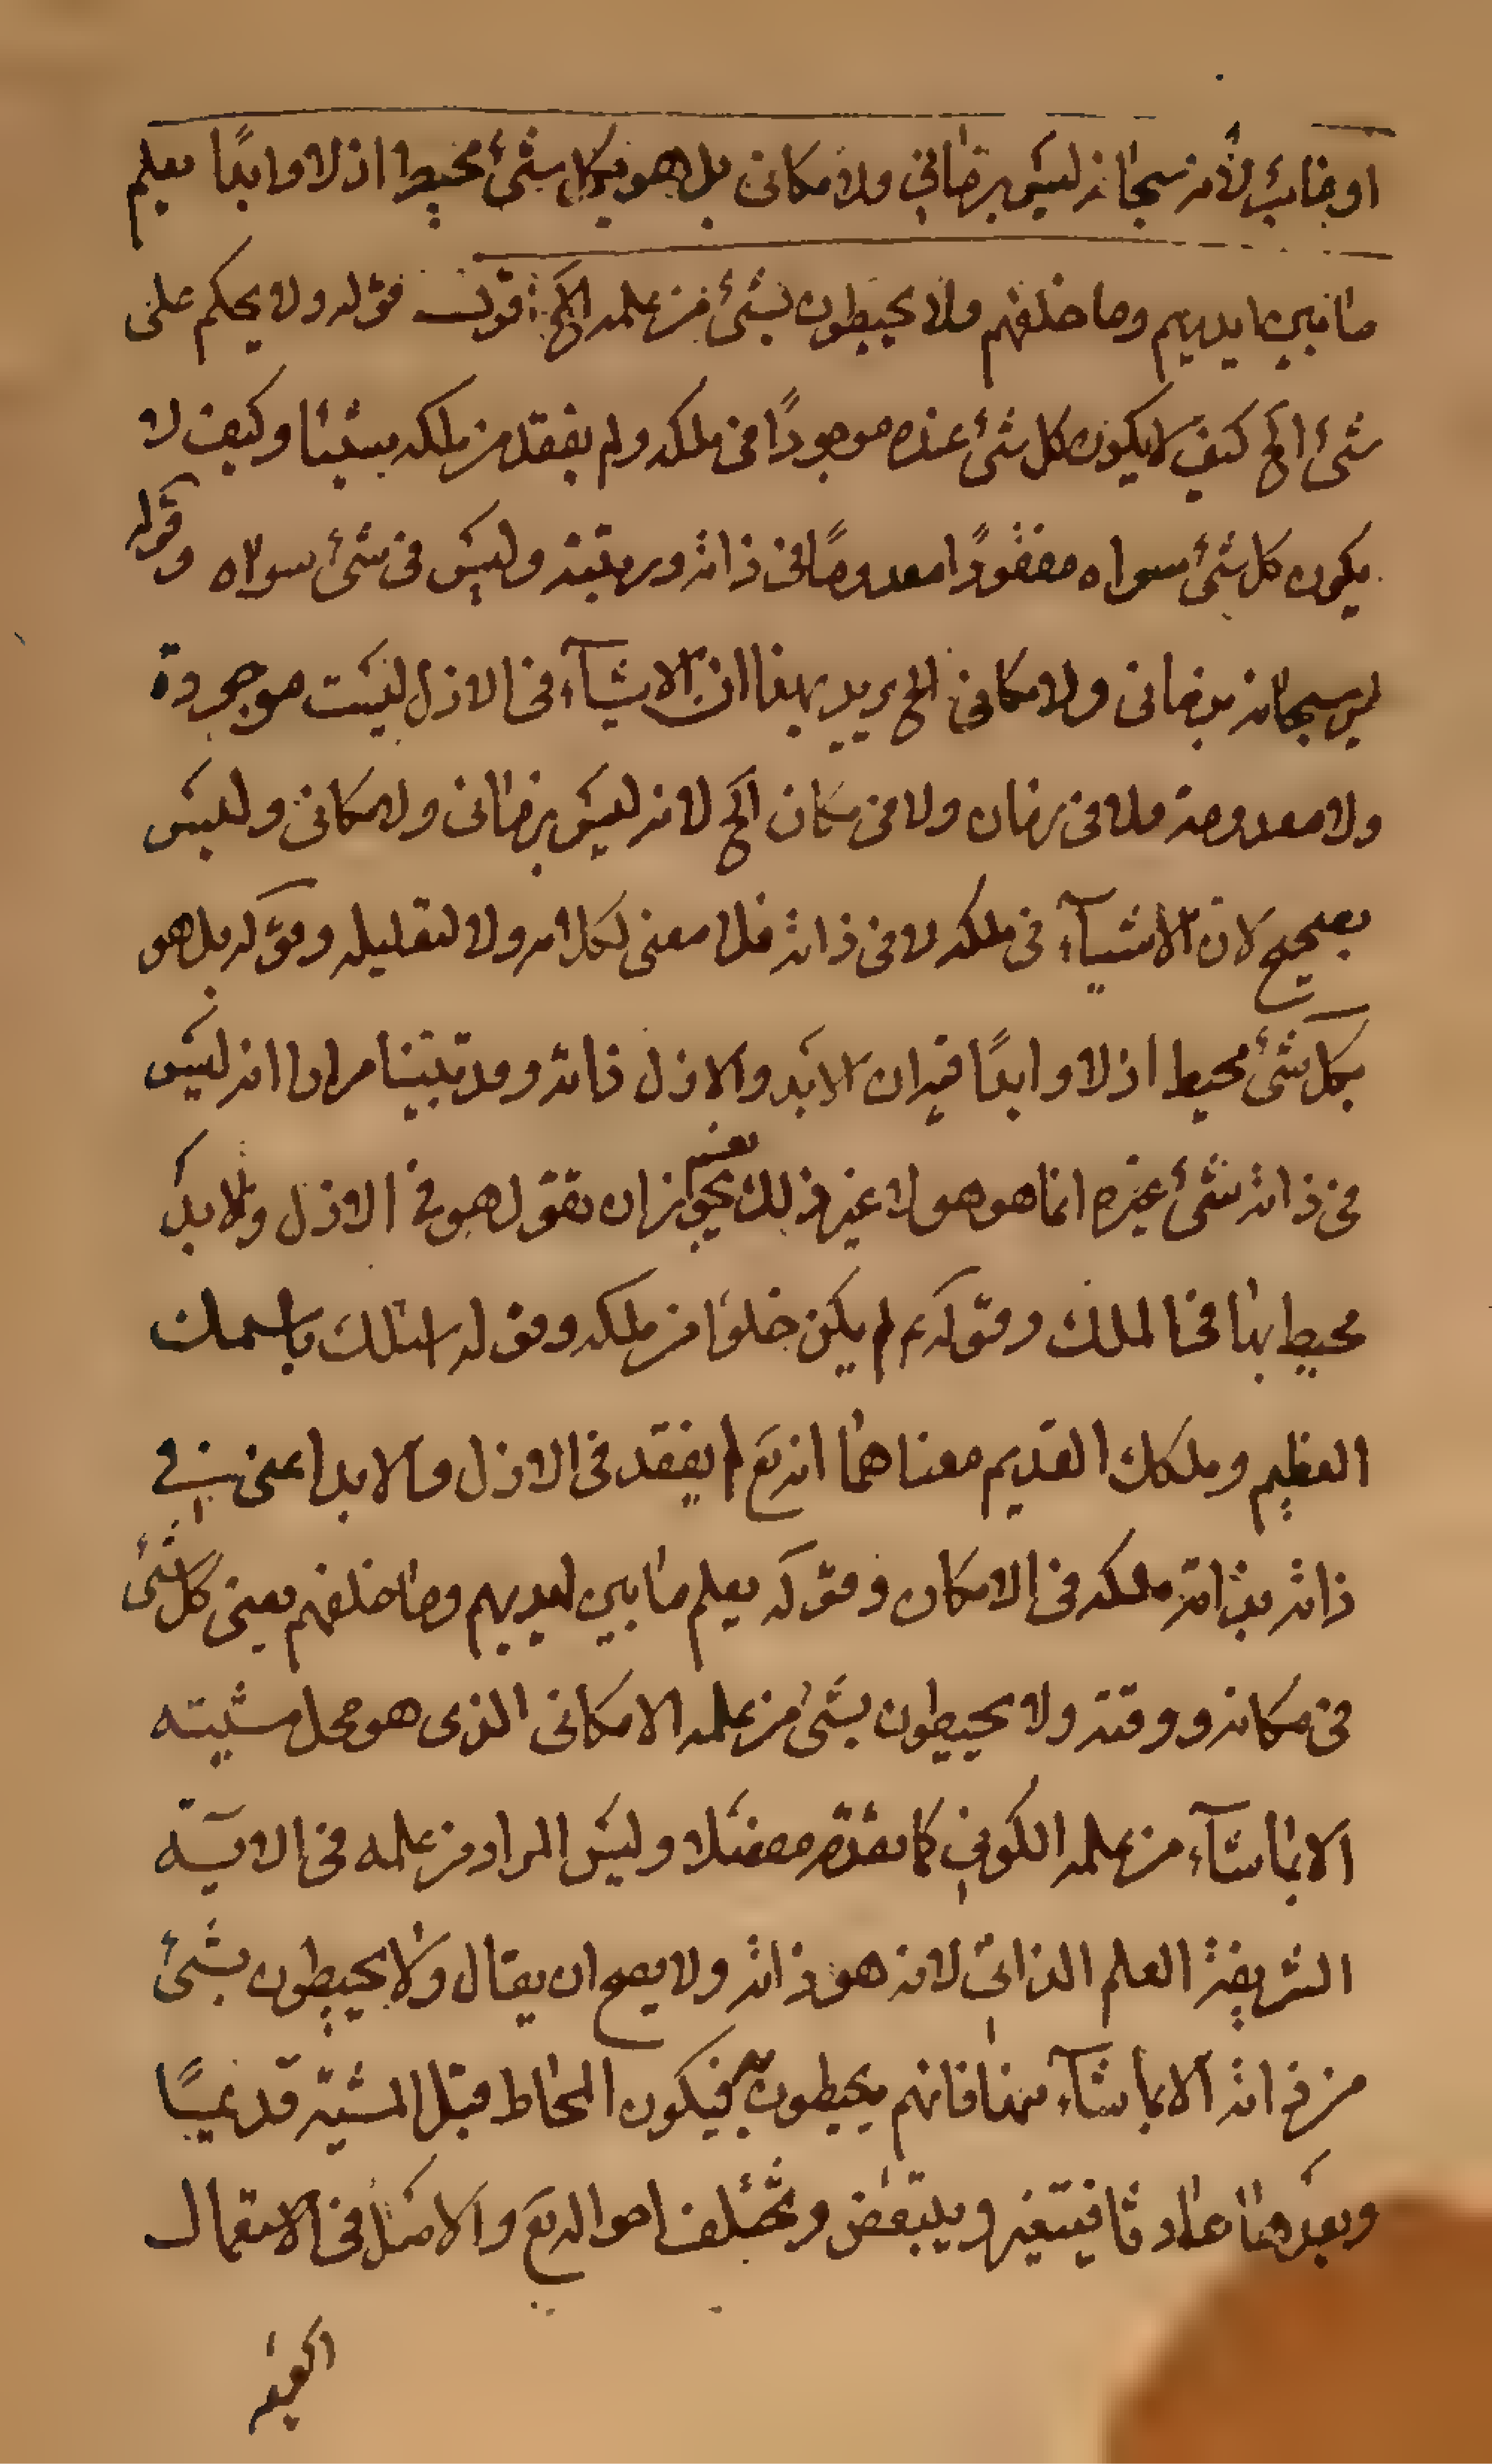 او زمانيا لأنه سبحانه ليس بزماني ولا مكاني بل هو بكل شئ محيط ازلا وابدًا يعلم
ما بين ايديهم وما خلفهم ولا يحيطون بشئ من علمه الخ اقول قوله ولا يحكم على
شئ الخ كيف لا يكون كل شئ عنده موجودًا في ملكه ولم يفقد من ملكه شيئا وكيف لا
يكون كل شئ سواه مفقودًا معدومًا في ذاته ورتبته وليس في شئ سواه وقوله
ليس سبحانه بزماني ولا مكاني الخ يريد بهذا ان الاشيآء في الازل ليست موجودة
ولا معدومة ولا في زمان ولا في مكان الخ لانه ليس بزماني ولا مكاني وليس
بصحيح لان الاشيآء في ملكه لا في ذاته فلا معنى لكلامه ولا لتعليله وقوله بل هو
بكل شئ محيط ازلا وابدًا فيه ان الابد والازل ذاته وقد بينا مرارا انه ليس
في ذاته شئ غيره انما هو هو لا غير ذلك نعم يجوز ان نقول هو في الازل والابد
محيط بها في الملك وقوله لم يكن خلوا من ملكه وقوله اسئلك باسمك
العظيم وملكك القديم معناهما انه تع لم يفقد في الازل والابد اعني في
ذاته بذاته ملكه في الامكان وقوله يعلم ما بين ايديهم وما خلفهم يعني كل شئ
في مكانه ووقته ولا يحيطون بشئ من علمه الامكاني الذى هو محل مشيته
الا بما شآء من علمه الكوني كما تقدم مفصلا وليس المراد من علمه في الآية
الشريفة العلم الذاتي لانه هو ذاته ولا يصح ان يقال ولا يحيطون بشئ
من ذاته الا بما شآء منها فانهم يحيطون به فيكون المحاط قبل المشية قديمًا
وبعدها حادثا فيتغير ويتبعض وتختلف احواله تع والاصل في الاستعمال